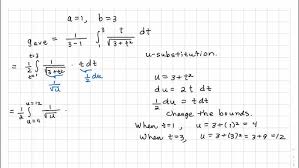 a=1, b=3
g_ave = 1/(3-1) ∫_1^3 t/√(3+t²) dt
u-substitution.
= 1/2 ∫_{t=1}^{t=3} 1/√(3+t²) · t dt
1/√u
1/2 du
u = 3+t²
du = 2t dt
1/2 du = t dt
change the bounds.
= 1/2 ∫_{u=4}^{u=12} 1/√u ·
When t=1, u = 3+(1)² = 4
When t=3, u = 3+(3)² = 3+9 = 12